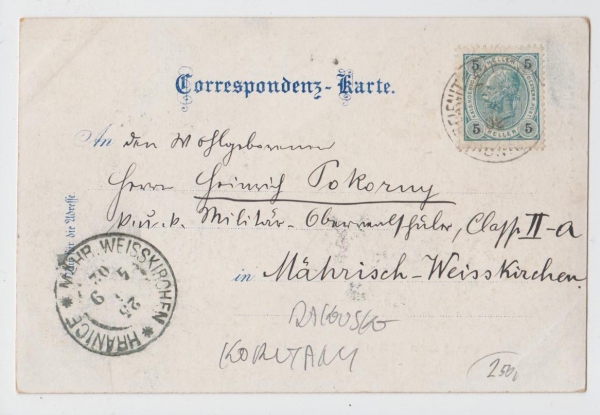 Correspondenz-Karte.
5 5
HELLER
5 HELLER 5
An den Wohlgeborenen
Herrn Heinrich Pokorny
k.u.k. Militär-Oberrealschüler, Classe II-a
in Mährisch-Weisskirchen.
die Adresse
MÄHR. WEISSKIRCHEN * HRANICE *
25 9 02
RAKOUSKO
KORUTANY
250,